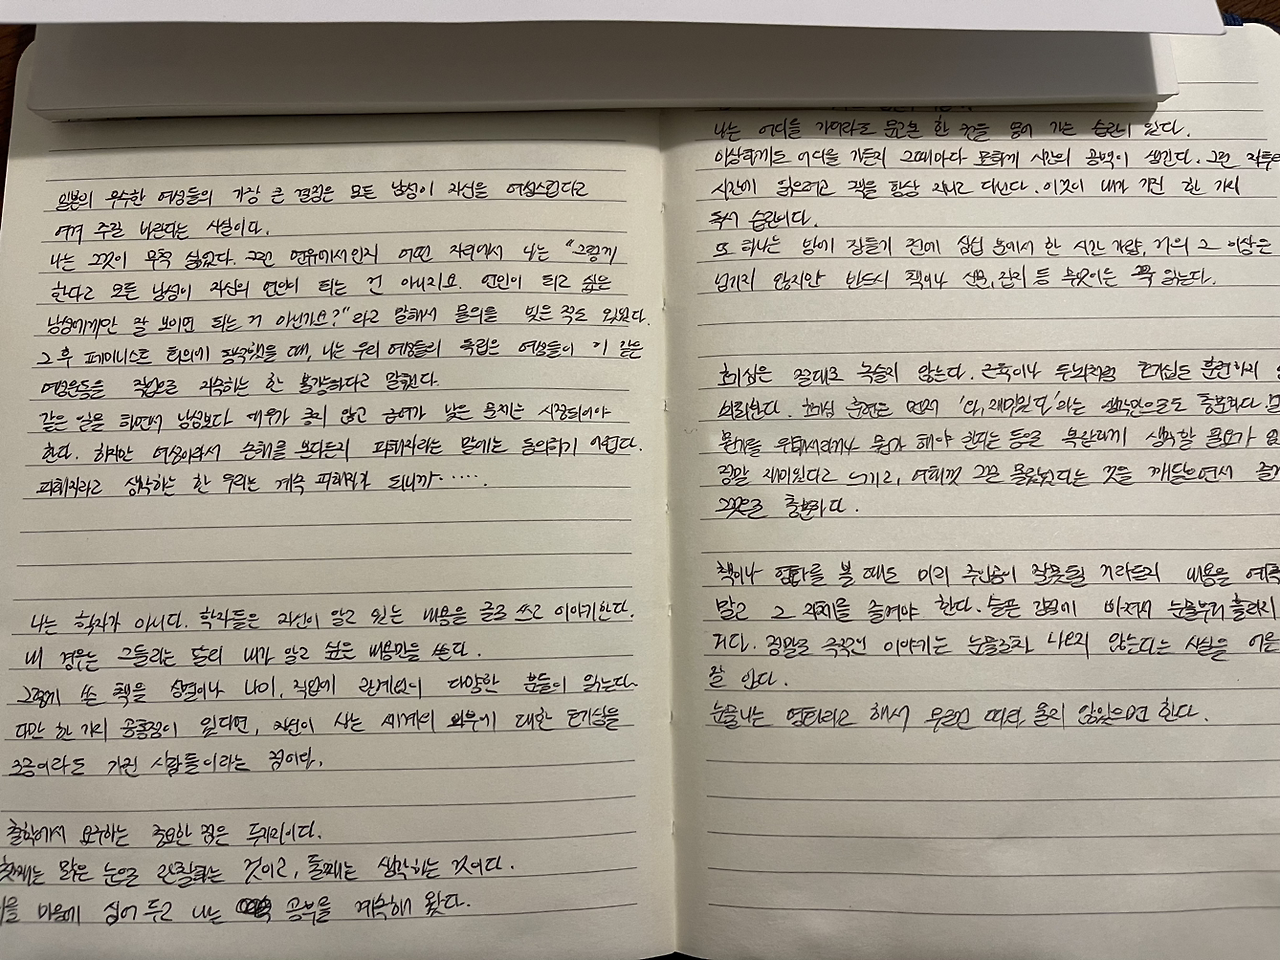 일본의 우수한 여성들의 가장 큰 결점은 모든 남성이 자신을 여성스럽다고
여겨 주길 바란다는 사실이다.
나는 그것이 무척 싫었다. 그런 연유에서인지 어떤 자리에서 나는 "그렇게
한다고 모든 남성이 자신의 연인이 되는 건 아니지요. 연인이 되고 싶은
남성에게만 잘 보이면 되는 거 아닌가요?"라고 말해서 물의를 빚은 적도 있었다.
그 후 페미니스트 회의에 참석했을 때, 나는 우리 여성들의 독립은 여성들이 이 같은
여성운동을 직업으로 지속하는 한 불가능하다고 말했다.
같은 일을 하면서 남성보다 대우가 좋지 않고 급여가 낮은 문제는 시정되어야
한다. 하지만 여성이라서 손해를 본다든지 피해자라는 말에는 동의하기 어렵다.
피해자라고 생각하는 한 우리는 계속 피해자가 되니까......
나는 학자가 아니다. 학자들은 자신이 알고 있는 내용을 글로 쓰고 이야기한다.
내 경우는 그들과는 달리 내가 알고 싶은 내용만을 쓴다.
그렇게 쓴 책을 성별이나 나이, 직업에 관계없이 다양한 분들이 읽는다.
다만 한 가지 공통점이 있다면, 자신이 사는 세계의 외부에 대한 호기심을
조금이라도 가진 사람들이라는 점이다.
철학에서 요구하는 중요한 점은 두 가지이다.
첫째는 맑은 눈으로 관찰하는 것이고, 둘째는 생각하는 것이다.
마음에 심어 두고 나는 공부를 계속해 왔다.
나는 어디를 가더라도 문고본 한 권을 넣어 가는 습관이 있다.
이상하게도 어디를 가든지 그때마다 묘하게 시간의 공백이 생긴다. 그런 자투리
시간에 읽으려고 책을 항상 지니고 다닌다. 이것이 내가 가진 한 가지
독서 습관이다.
또 하나는 밤에 잠들기 전에 삼십 분에서 한 시간 가량, 거의 그 이상은
넘기지 않지만 반드시 책이나 신문, 잡지 등 무엇이든 꼭 읽는다.
호기심은 절대로 녹슬지 않는다. 근육이나 두뇌처럼 호기심도 훈련하지
쇠퇴한다. 호기심 훈련은 먼저 '와, 재미있다'라는 생각만으로도 충분하다
뭔가를 위해서라거나 뭔가 해야 된다는 등으로 복잡하게 생각할 필요가
정말 재미있다고 느끼고, 여태껏 그걸 몰랐었다는 것을 깨달으면서
그것으로 충분하다.
책이나 영화를 볼 때도 미리 주인공이 잘못될 거라든지 내용을
말고 그 자체를 즐겨야 한다. 슬픈 감정에 빠져서 눈물부터 흘리지
거다. 정말로 극적인 이야기는 눈물조차 나오지 않는다는 사실을
잘 안다.
눈물나는 영화라고 해서 무조건 따라 울지 않았으면 한다.